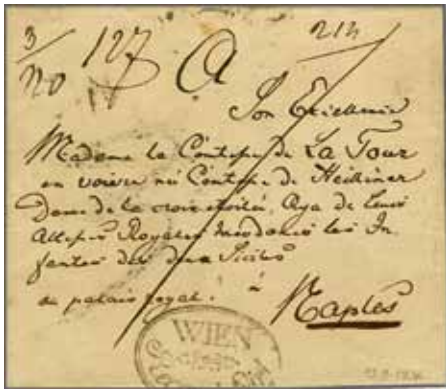 3/20 127 A 214
Son Excellence
Madame la Contesse de La Tour
en voivre né Contesse de
Dame de la croix etoilée, Aya de Leurs
Altesses Royales Mesdames les In-
fantes des deux Siciles
au palais royal. à
Naples
WIEN